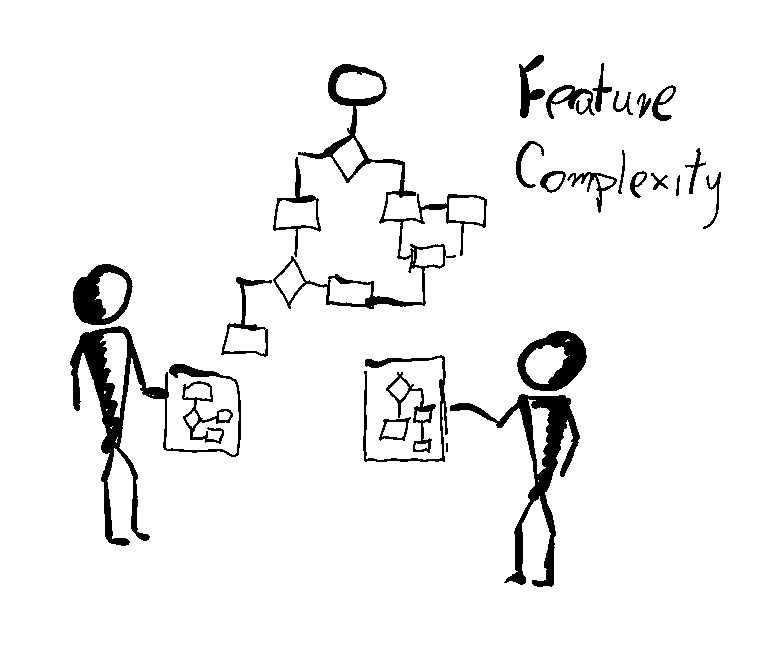 Feature
Complexity